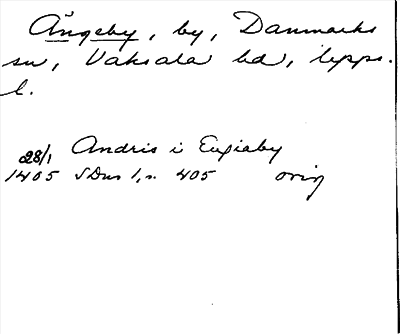 Ängeby, by, Danmarks
sn, Vaksala hd, Upps.
l.
28/1 Andris i Engiaby
1405 SDns 1, s. 405 orig